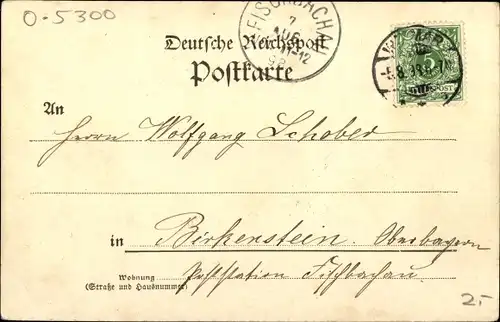 O-5300
FISCHBACHAU
7
AUG
11-12
98
Deutsche Reichspost
Postkarte
5
REICHSPOST
An
Herrn Wolfgang Schober
in Birkenstein. Oberbayern
Poststation Fischbachau
Wohnung
(Straße und Hausnummer)
2.-